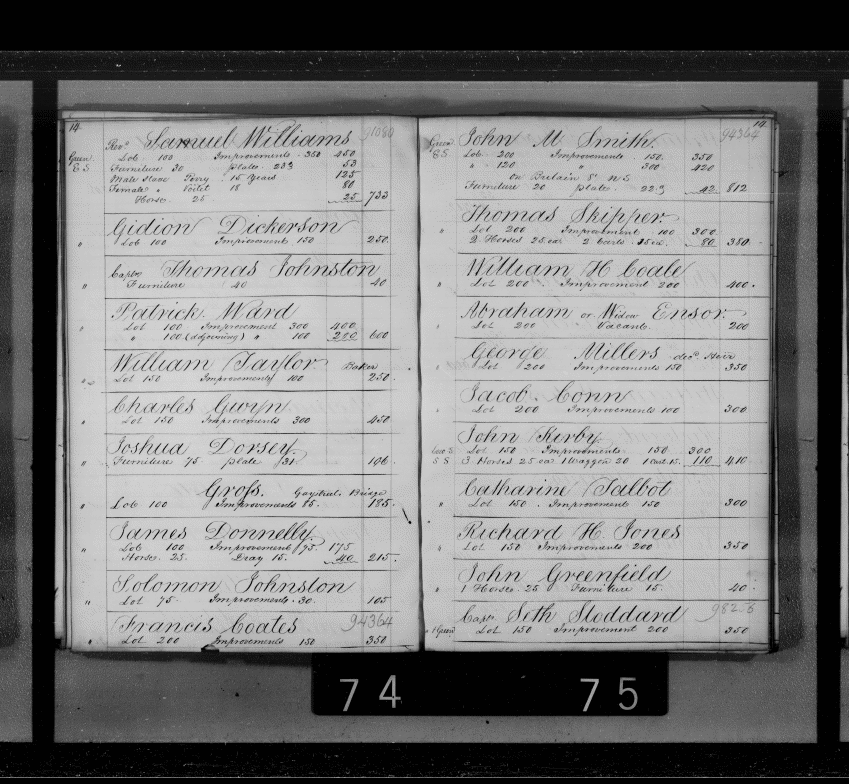 14
Revd Samuel Williams 91080
Green Lot 100 Improvements 350 450
E.S Furniture 30 plate 23 53
Male slave Perry 15 Years 125
Female " 18 80
Horse 25 25 733
Gidion Dickerson
" Lot 100 Improvement 150 250
Capt Thomas Johnston
" Furniture 40 40
Patrick Ward
" Lot 100 Improvement 300 400
" 100 (adjoining) " 100 200 600
William Taylor Baker
" Lot 150 Improvements 100 250
Charles Gwyn
" Lot 150 Improvements 300 450
Joshua Dorsey
" Furniture 75 plate 31 106
Gross Gaystreet Bridge
" Lot 100 Improvements 85 185
James Donnelly
" Lot 100 Improvement 75 175
Horse 25 Dray 15 40 215
Solomon Johnston
" Lot 75 Improvements 30 105
Francis Coates 94364
" Lot 200 Improvements 150 350
14
John M Smith 94364
Green Lot 200 Improvements 150 350
E.S. " 120 " 300 420
on Britain St N.S
Furniture 20 plate 22 42 812
Thomas Skipper
" Lot 200 Improvement 100 300
2 Horses 25 ea 2 Carts 15 ea 80 380
William H Coale
" Lot 200 Improvement 200 400
Abraham or Widow Ensor
" Lot 200 Vacant 200
George Millers decd Heir
" Lot 200 Improvements 150 350
Jacob Conn
" Lot 200 Improvements 100 300
John Kirby
Lot 150 Improvements 150 300
S S 3 Horses 25 ea 1 Waggon 20 1 Cart 15 110 410
Catharine Talbot
" Lot 150 Improvements 150 300
Richard H. Jones
" Lot 150 Improvements 200 350
John Greenfield
" 1 Horse 25 Furniture 15 40
Capt Seth Stoddard 98256
" Green Lot 150 Improvement 200 350
74 75